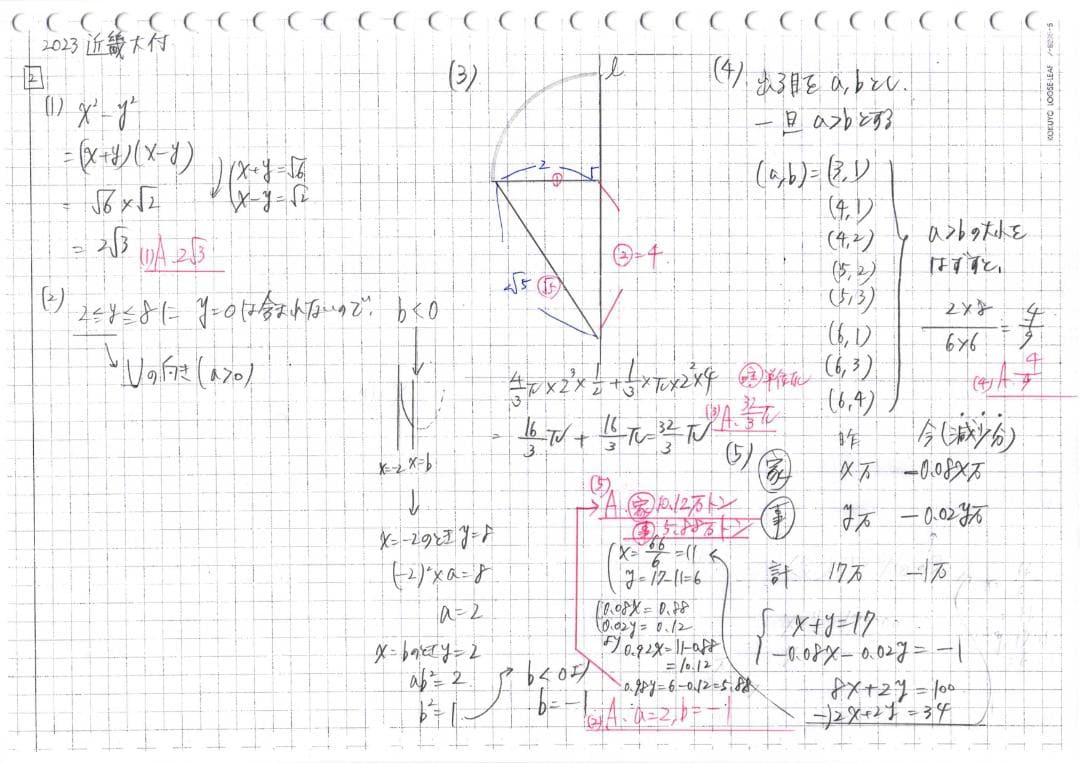 2023 近畿大付
2
(1) x² - y²
= (x+y)(x-y)
= √6 × √2
x+y=√6
x-y=√2
= 2√3
(1)A. 2√3
(2) 2≦y≦8に y=0は含まれないので、 b<0
Uの向き(a>0)
x=-2 x=b
x=-2のとき y=8
(-2)²×a=8
a=2
x=bのとき y=2
ab²=2
b²=1
b<0より
b=-1
(2)A. a=2, b=-1
(3)
l
2
①
②=4
2√5 √5
4/3 π×2³×1/2 + 1/3×π×2²×4
単位なし
= 16/3 π + 16/3 π = 32/3 π
(3)A. 32/3 π
(4) 出る目を a, bとし、
一旦 a>bとする
(a,b)=(3,1)
(4,1)
(4,2)
(5,2)
(5,3)
(6,1)
(6,3)
(6,4)
a>bの大小を
はずすと、
2×8/6×6 = 4/9
(4)A. 4/9
(5)
昨 今(減少分)
家 x万 -0.08x万
事 y万 -0.02y万
計 17万 -1万
x+y=17
-0.08x-0.02y=-1
8x+2y=100
-)2x+2y=34
x=66/6=11
y=17-11=6
0.08x=0.88
0.02y=0.12
より 0.92x=11-0.88
=10.12
0.98y=6-0.12=5.88
(5)
A. 家 10.12万トン
事 5.88万トン
KOKUYO LOOSE-LEAF